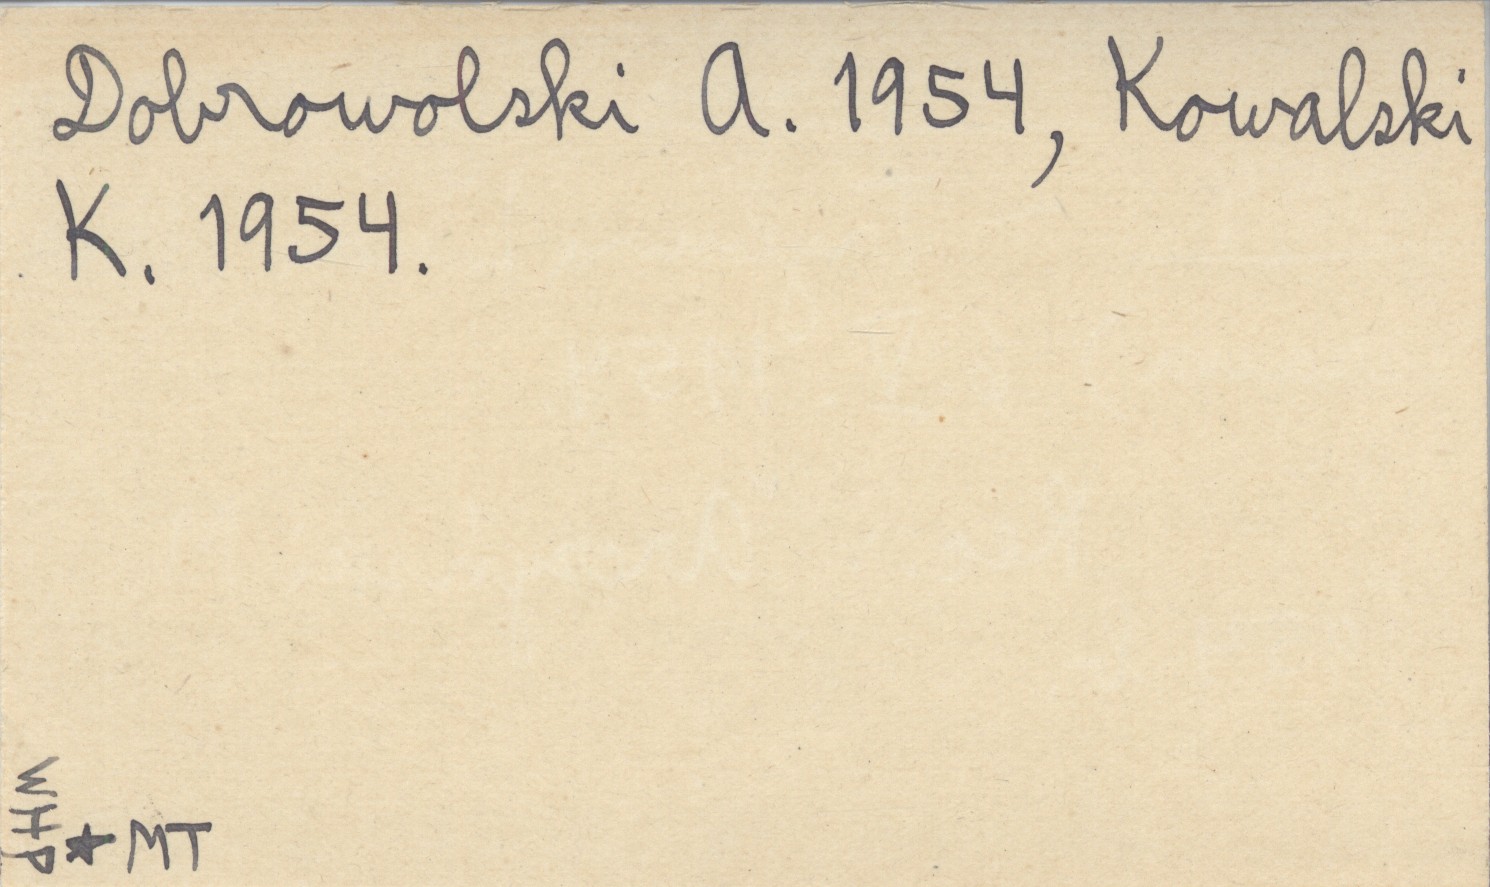 Dobrowolski A. 1954, Kowalski
K. 1954.
WHP
★ MT